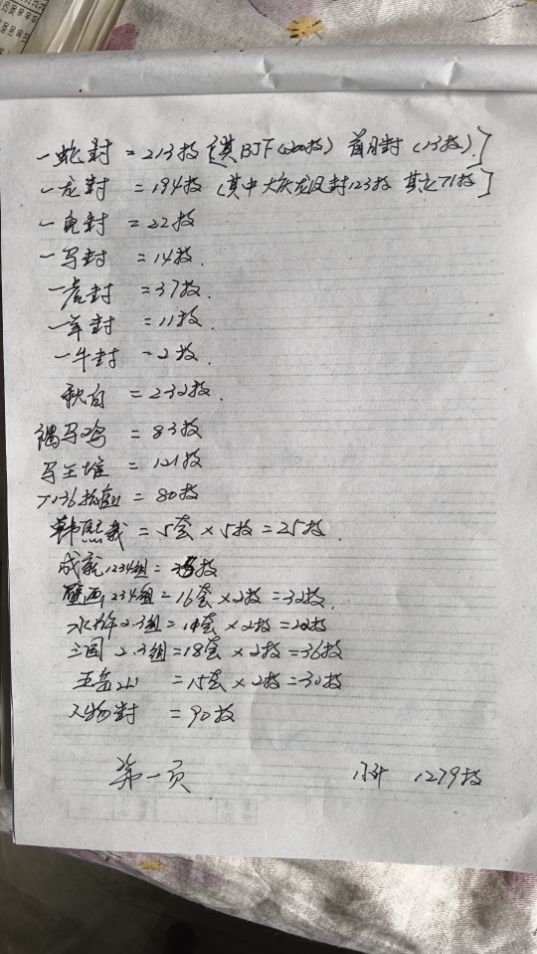 一蛇封 = 213枚 [其BJF(200枚) 首日封 (13枚).]
一龙封 = 194枚 (其中大庆龙凤封123枚 其它71枚]
一兔封 = 22枚
一马封 = 14枚.
一虎封 = 37枚.
一羊封 = 11枚.
一牛封 = 2枚.
秋白 = 232枚.
马鸡 = 83枚
马王堆 = 121枚
T136 = 80枚
韩熙载 = 5套×5枚 = 25枚.
成就1234组 = 35枚
壁画1234组 = 16套×2枚 = 32枚.
水浒2.3组 = 套×2枚 = 枚
三国2.3组 = 18套×2枚 = 36枚
五岳 = 15套×2枚 = 30枚
人物封 = 90枚
第一页 小计 1279枚